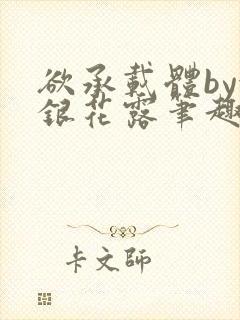 欲承載體by
銀花露筆趣
卡文師